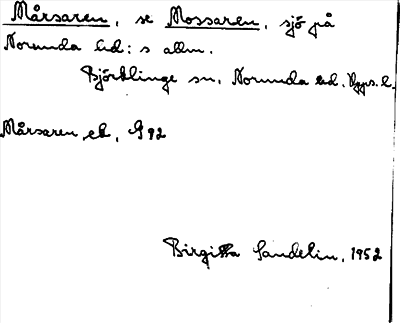 Mårsaren, se Mossaren, sjö på
Norunda hd:s allm.
Björklinge sn, Norunda hd, Upps. l.
Mårsaren, ek, G 92
Birgitta Sandelin, 1952